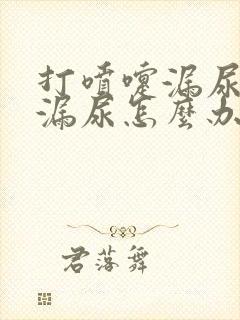 打噴嚏漏尿
漏尿怎麼办
君落舞